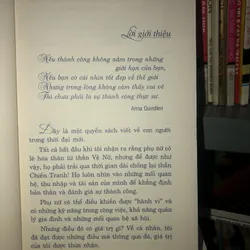 Lời giới thiệu
Nếu thành công không nằm trong những
giới hạn của bạn,
Nếu bạn có cái nhìn tốt đẹp về thế giới
Nhưng trong lòng không cảm thấy vui vẻ
Thì chưa phải là sự thành công thực sự.
Anna Quindlen
Đây là một quyển sách viết về con người
trong thời đại mới.
Tất cả bắt đầu khi tôi nhận ra rằng phụ nữ có
lẽ hóa thân từ thần Vệ Nữ, nhưng để được như
vậy, họ phải trải qua thời gian dài chống lại thần
Chiến Tranh! Họ lao vào hôn nhân, những mối quan
hệ, thu nhập và tài sản của mình để khẳng định
bản thân và đánh giá sự thành công.
Phụ nữ có thể kiểm soát được "hành vi" và
có những kỹ năng trong công việc, khả năng quản
lý gia đình và những mối quan hệ xã hội.
Nhưng điều đó có giá trị gì? Về cá nhân, tôi
đã đạt được những điều mà thông qua đó, giá trị
của tôi được thừa nhận.